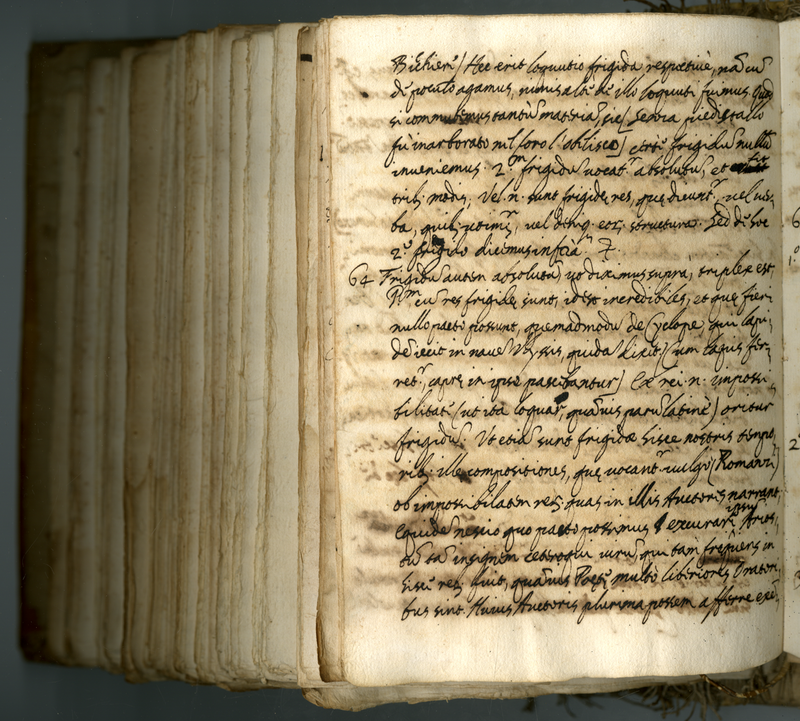 Bichieri) Hec erit loquutio frigida respectiuè, nā cū
de poculo agamus, nimis alte de illo loquuti fuimus. Quod
si commutemus tantū materiā, sic( Sedoia piedistallo
fu inarborato nel foro l'obelisco) certe frigidū nullū
inueniemus. 2.m frigidū uocatr absolutū, et
tribq modis. Vel .n. sunt frigidę res, quę dicuntr, uel uer,
ba, quibq utimur, uel deniq eorq structura. Sed de hoc
2.o frigido dicemus infrà 7.
64 Frigidū autem absolutū, ut diximus suprà, triplex est,
P.m cū res frigidę sunt, idest incredibiles, et quę fieri
nullo pacto possunt, quemadmodū de Cyclope, qui lapi,
dē iecit in nauē Vlyssis, quidā dixit (cum lapis fer,
retr, caprę in ipso pascebantur) Ex rei .n. impossi,
bilitate (ut ita loquar, quāuis parū latinè) oritur
frigidū. Vt etiā sunt frigidæ hisce nostris tempo,
ribq illę compositiones, quę uocantr uulgò (Romanzi)
ob impossibilatem rerq quas in illis Auctoris narrant,
Equidē nescio quo pacto possimus excusari ipsū Arios,
tū tā insignem cęteroqui uirū, qui tam frequens in
hisce rebq fuit, quāuis Poetę multò liberiores Oratori,
bus sint. Huius Auctoris plurima possem afferre exē,